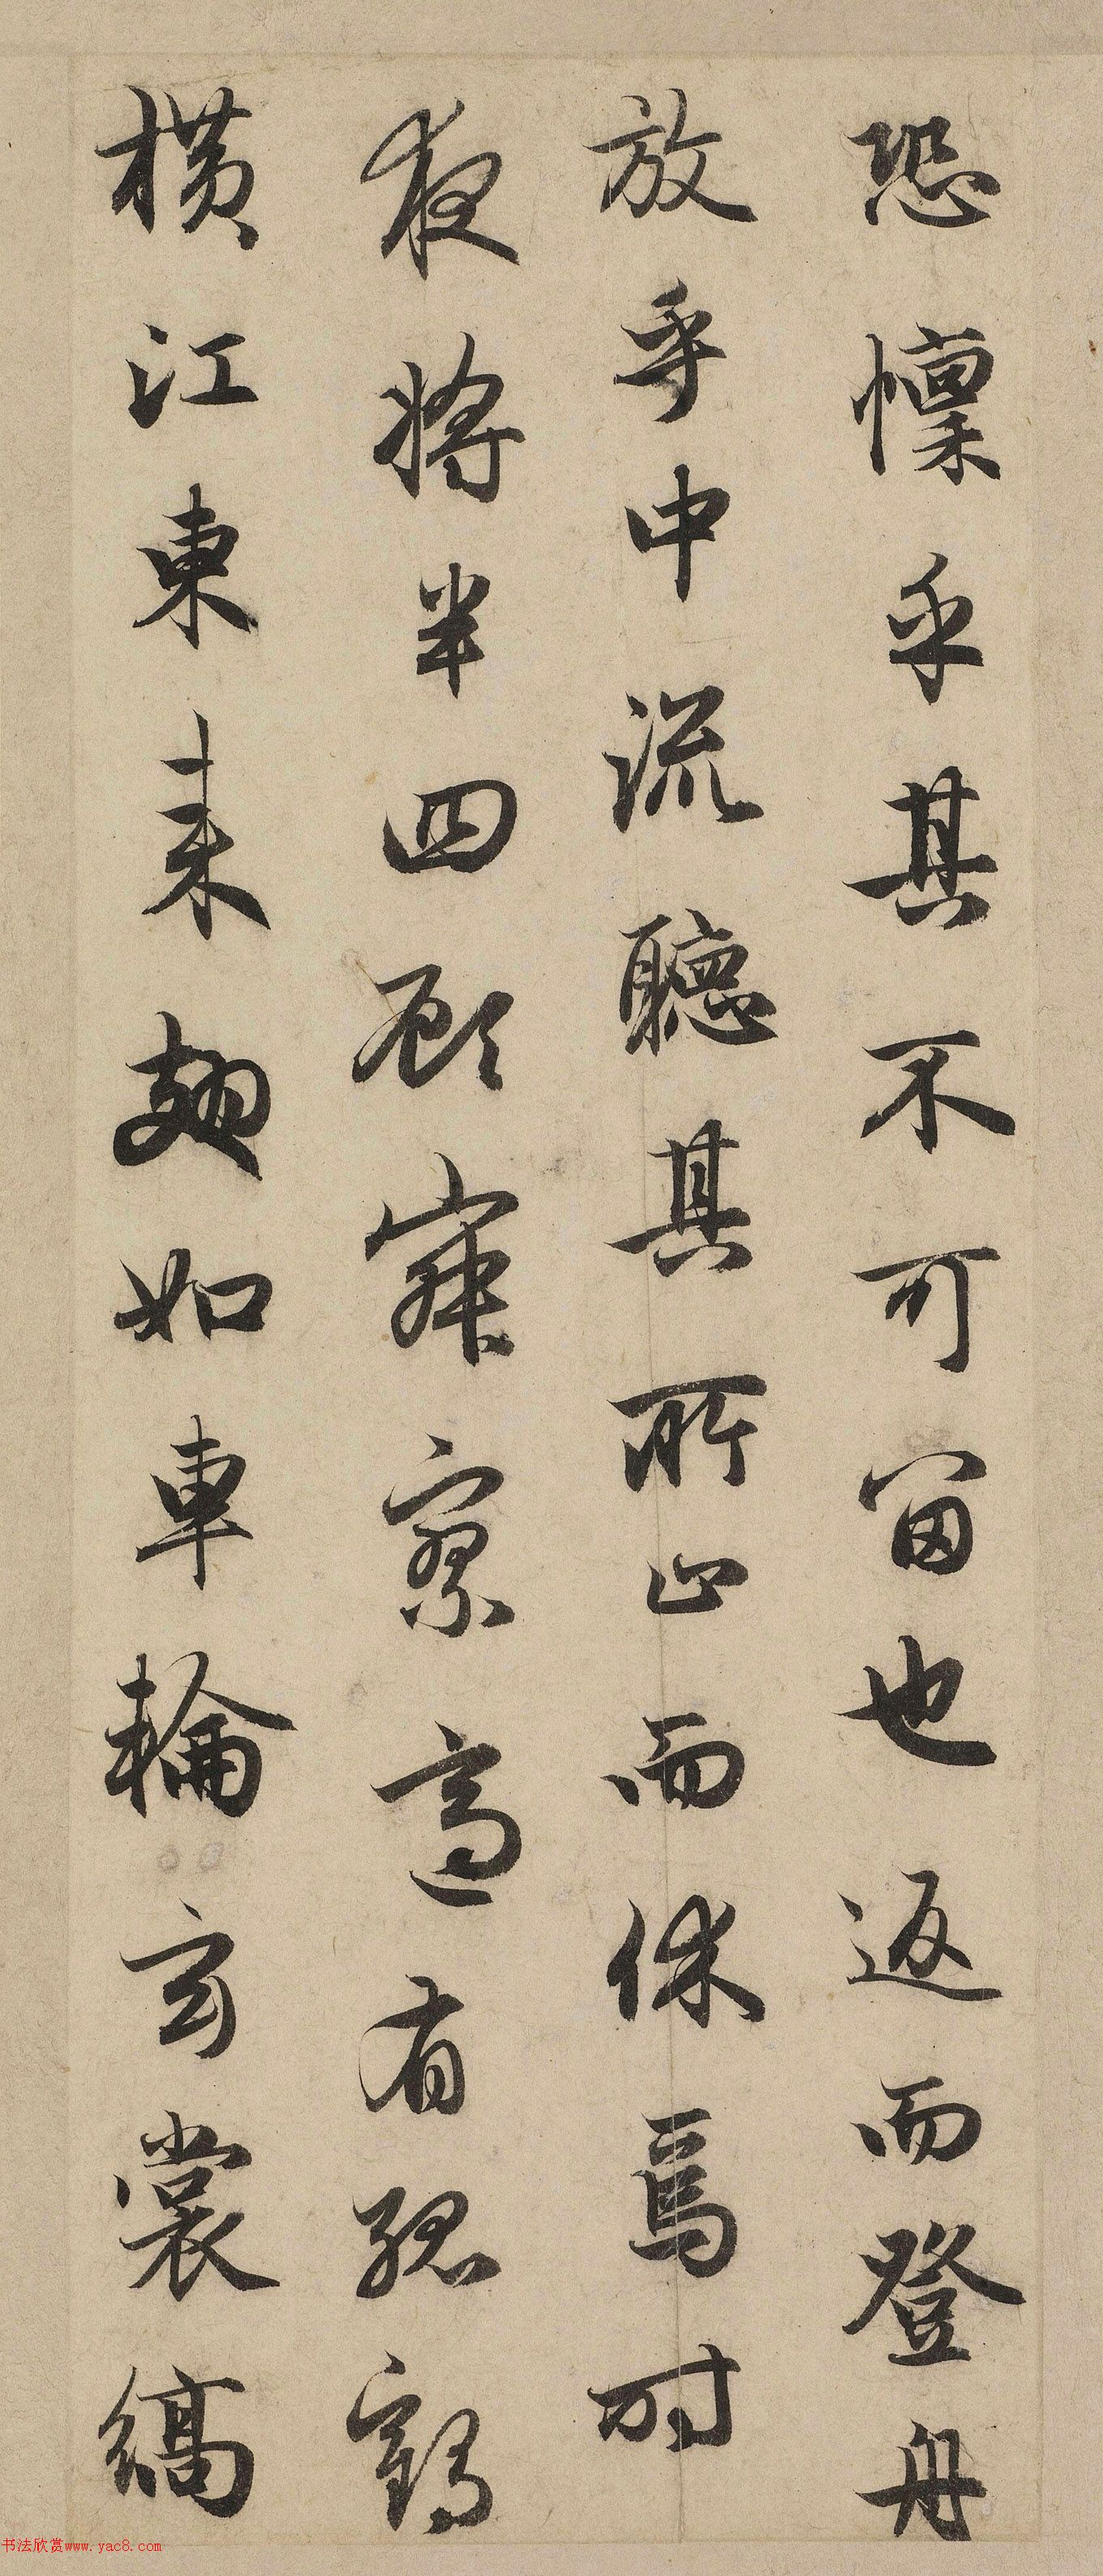 恐懔乎其不可留也返而登舟
放乎中流聽其所止而休焉时
夜將半四顾寂寥適有孤鶴
横江東来翅如車輪玄裳縞
书法欣赏www.yac8.com